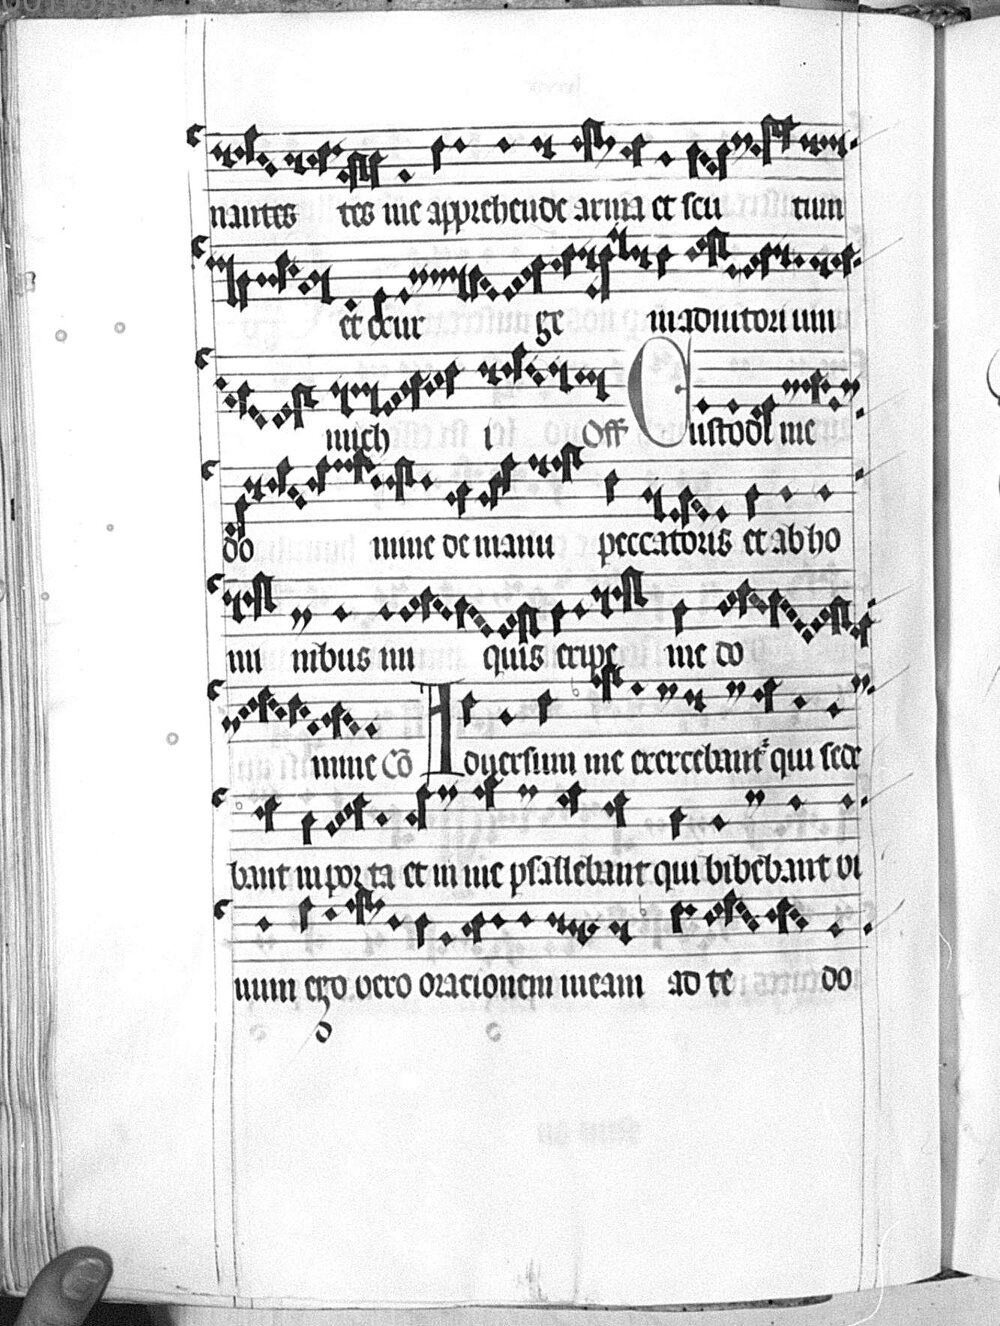 nantes tes me apprehende arma et scu tum
et exur ge in adiutori um
mich i Off Custodi me
do mine de manu peccatoris et ab ho
mi nibus ini quis eripe me do
mine Co Aduersum me exercebant qui sede
bant in por ta et in me psallebant qui bibebant vi
num ego vero orationem meam ad te do